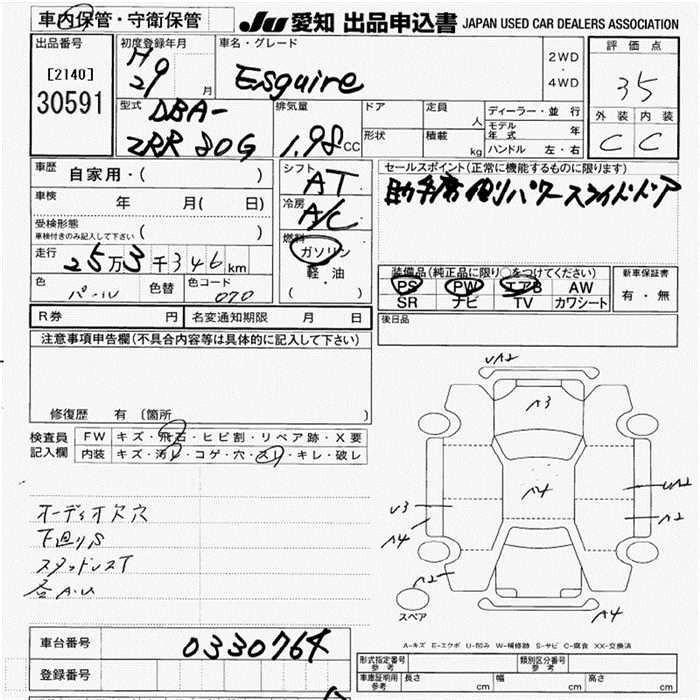 車内保管・守衛保管
JU 愛知 出品申込書 JAPAN USED CAR DEALERS ASSOCIATION
出品番号
[2140]
30591
初度登録年月
H
29 月
車名・グレード
Esquire
2WD
・
4WD
評価点
35
外装 内装
C C
型式
DBA-
ZRR 80G
排気量
1.98 CC
ドア
定員
人
形状
積載
kg
ディーラー・並 行
モデル年式 年
ハンドル 左・右
車歴
自家用・( )
車検
年 月( 日)
受検形態
車検付きのみ記入して下さい ( )
走行
25万3千346km
色
パール
色替
色コード
070
シフト
AT
冷房
A/C
燃料
ガソリン
・
軽油
( )
セールスポイント(正常に機能するものに限ります)
助手席側パワースライドドア
装備品(純正品に限り○をつけてください)
PS PW エアB AW
SR ナビ TV カワシート
新車保証書
有・無
後日品
R券 円
名変通知期限 月 日
注意事項申告欄(不具合内容等は具体的に記入して下さい)
修復歴 有 (箇所 )
検査員記入欄
FW キズ・飛石・ヒビ割・リペア跡・X要
内装 キズ・汚レ・コゲ・穴・スレ・キレ・破レ
オーディオ欠穴
下廻りS
スタッドレスT
各A.U
UA2
A3
A4
U3
A4
UA2
A2
A2
A4
スペア
A-キズ E-エクボ U-凹み W-補修跡 S-サビ C-腐食 XX-交換済
車台番号
0330764
登録番号
形式指定番号 参考
類別区分番号 参考
車庫証明用 参考
長さ cm 幅 cm 高さ cm